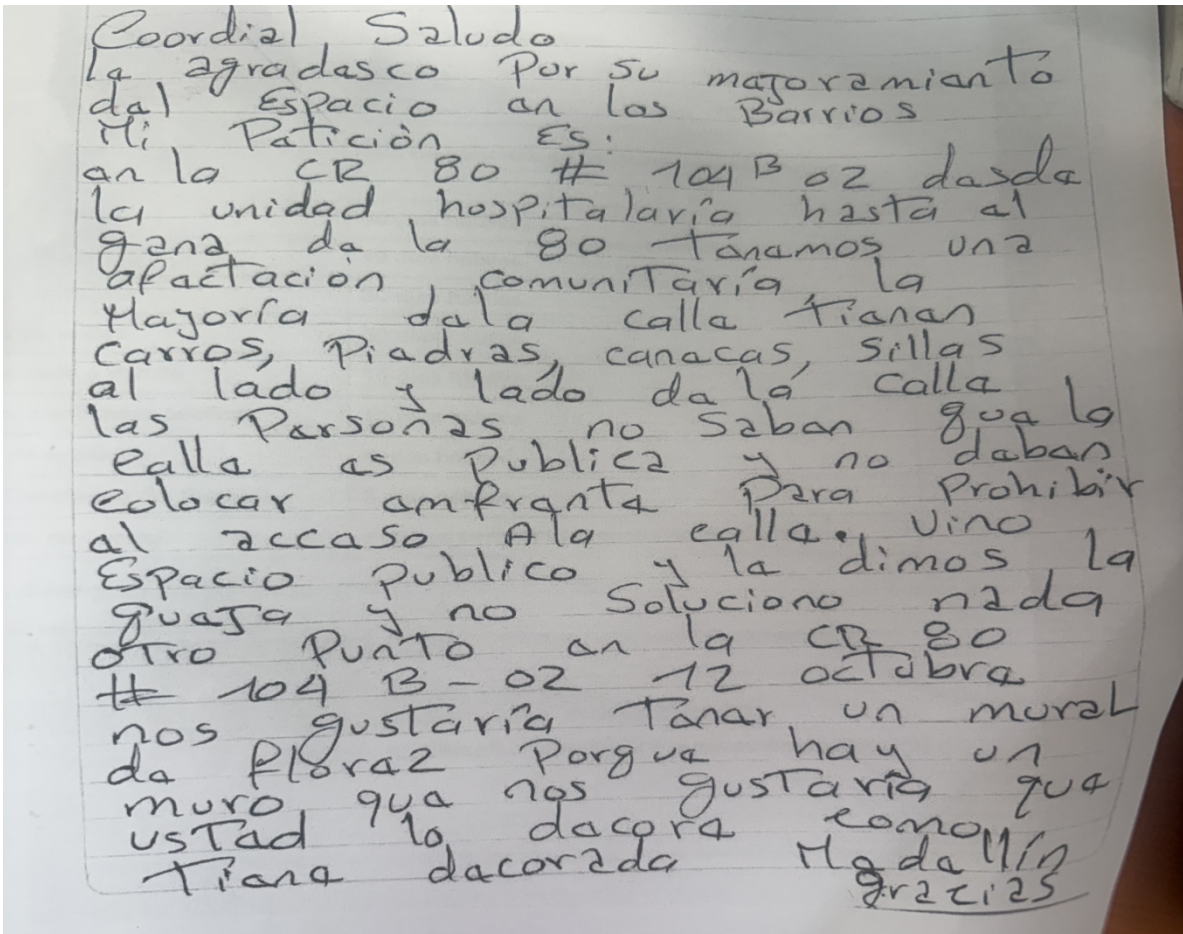 Coordial Saludo
Le agradesco Por su mejoramiento
del Espacio en los Barrios
Mi Petición Es:
en la CR 80 # 104 B 02 desde
la unidad hospitalaria hasta el
gene de la 80 Tenemos una
afectación comunitaria, la
Mayoría dela calle tienen
carros, Piedras, canecas, sillas
al lado y lado de la calle
las Personas no saben que la
calle es publica y no deben
colocar emfrente para Prohibir
el acceso A la calle. Vino
Espacio publico y le dimos la
queja y no Soluciono nada
otro Punto en la CR 80
# 104 B - 02 12 octubre
nos gustaría Tener un mural
de florez Porque hay un
muro que nos gustaría que
usted lo decore como
Tiene decorada Medellín
gracias